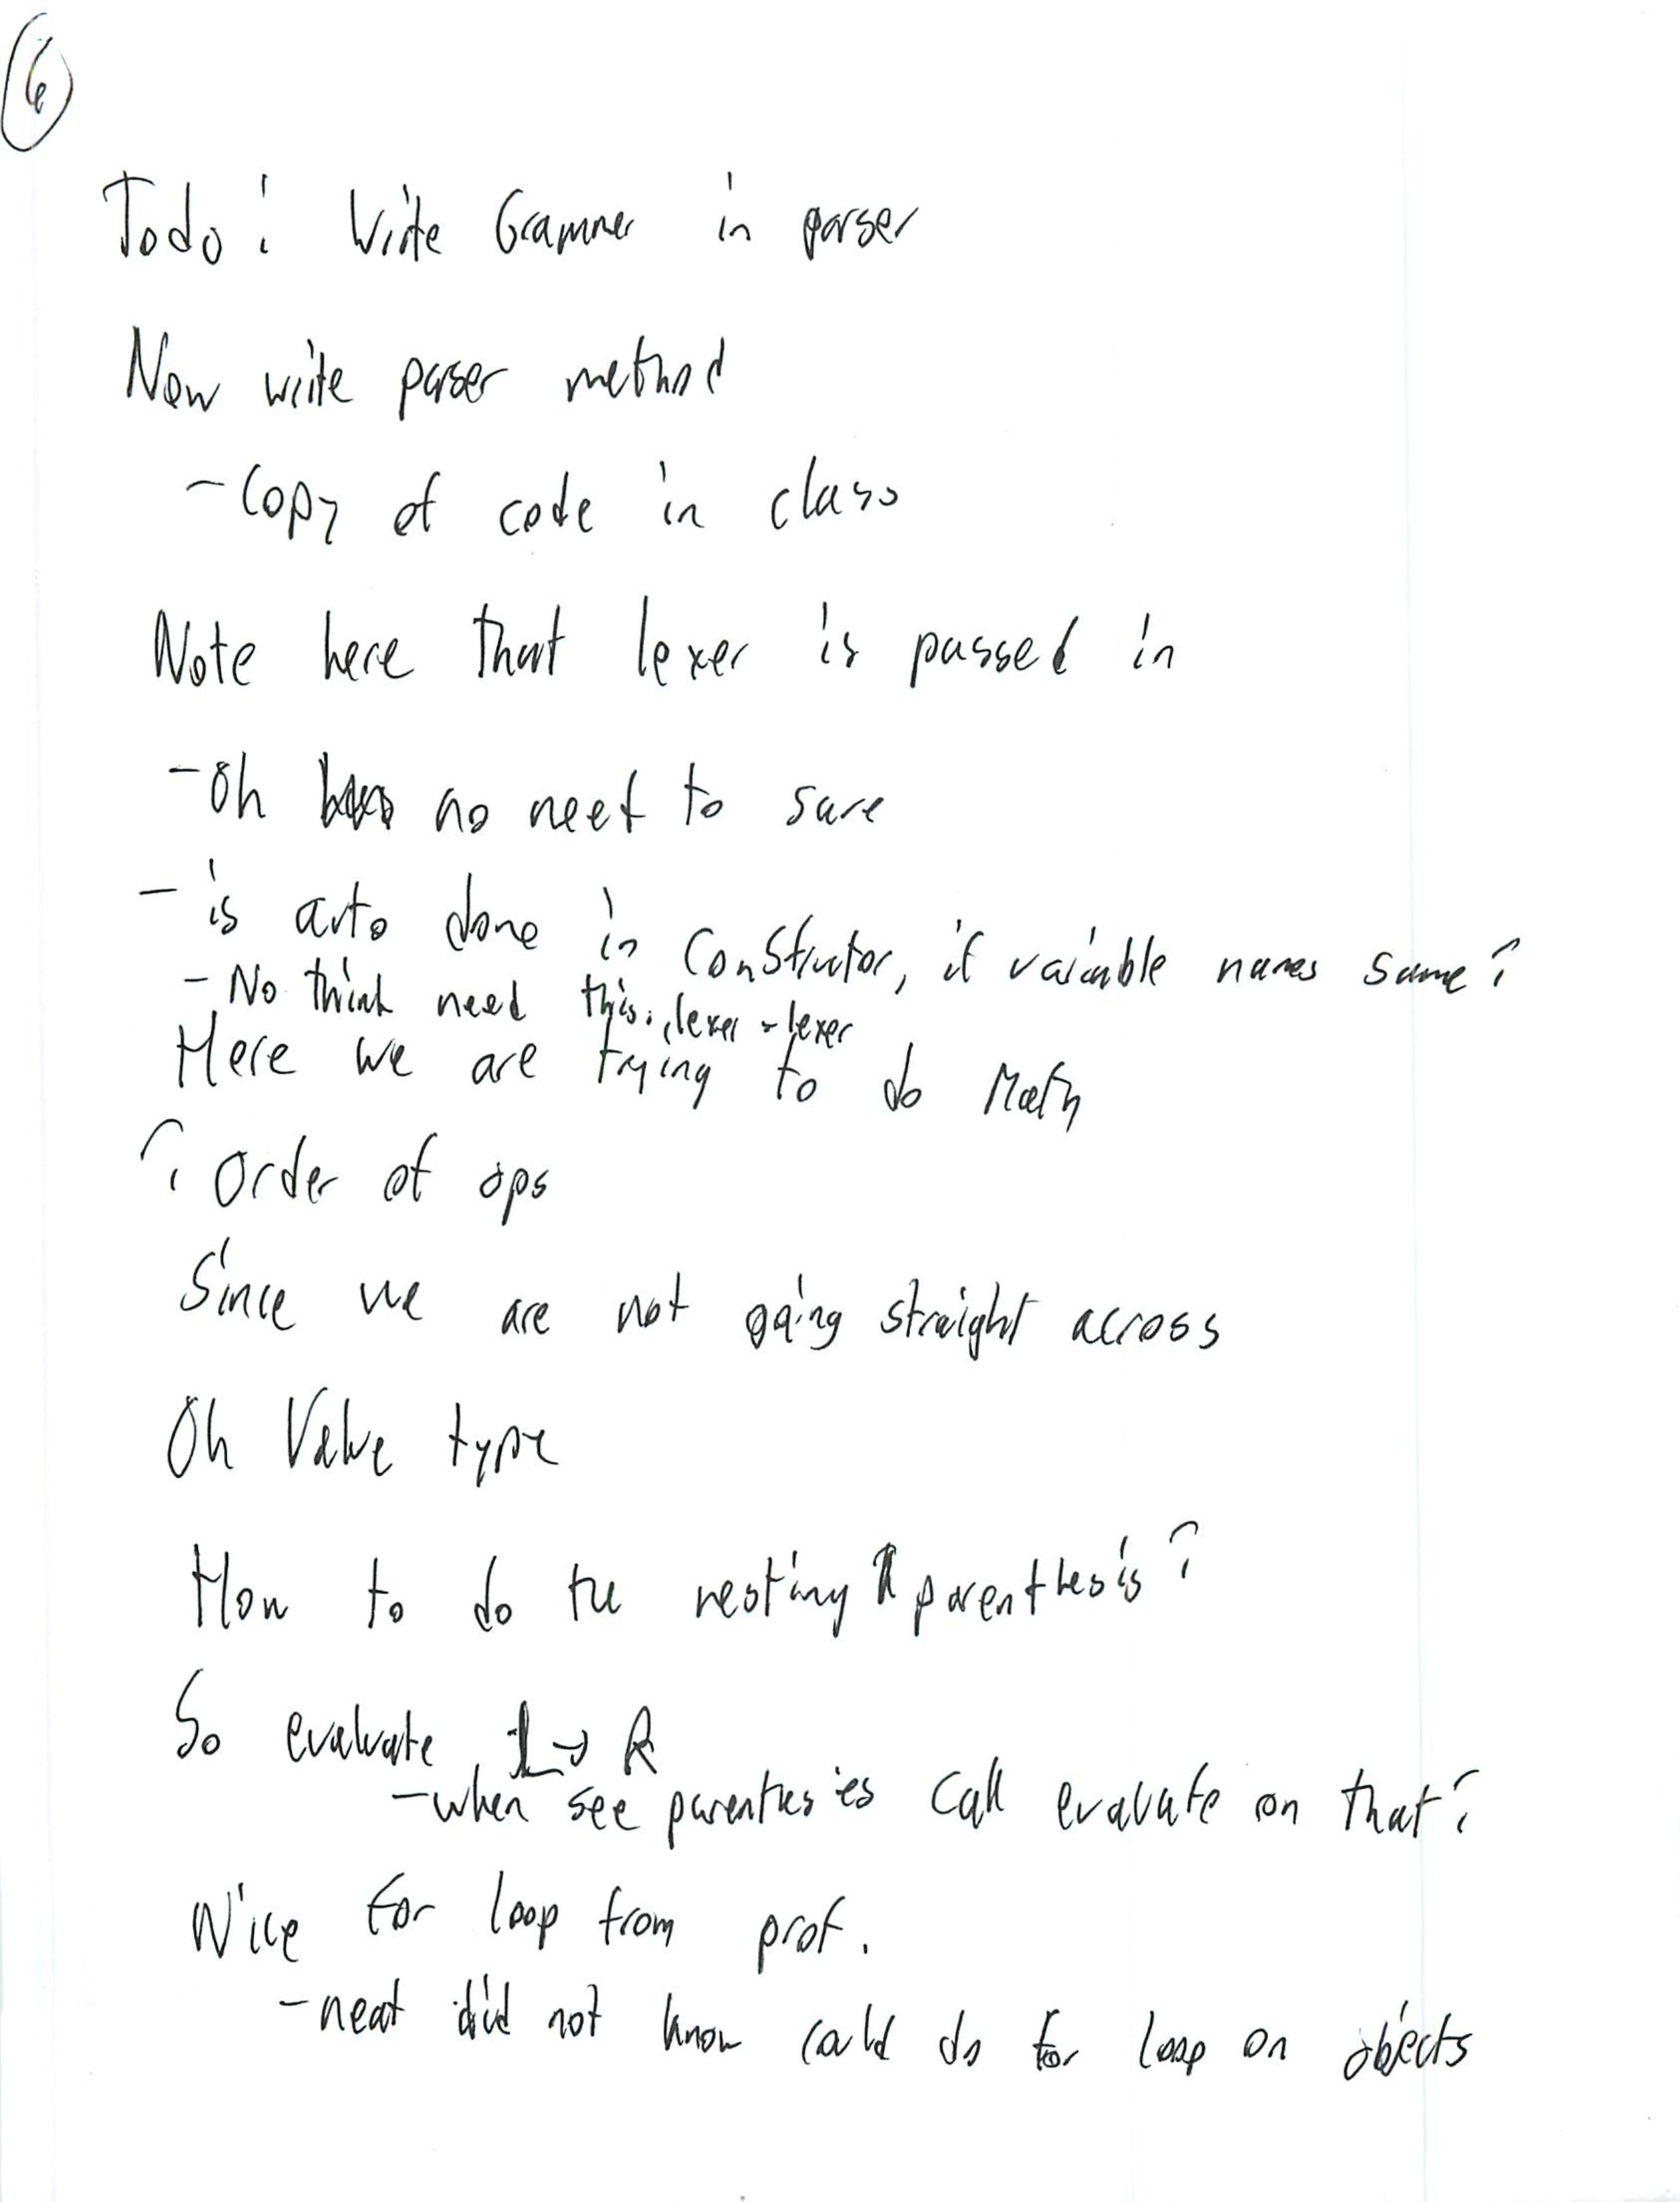 6
Todo: Write Grammer in parser
Now write parser method
- Copy of code in class
Note here that lexer is passed in
- Oh no need to save
- is auto done in constructor, if vairable names same?
- No think need this.lexer = lexer
Here we are trying to do Math
? Order of ops
Since we are not going straight across
Oh Value type
How to do the nesting parenthesis?
So evaluate L → R
- when see parenthesies call evaluate on that?
Nice for loop from prof.
- neat did not know could do for loop on objects